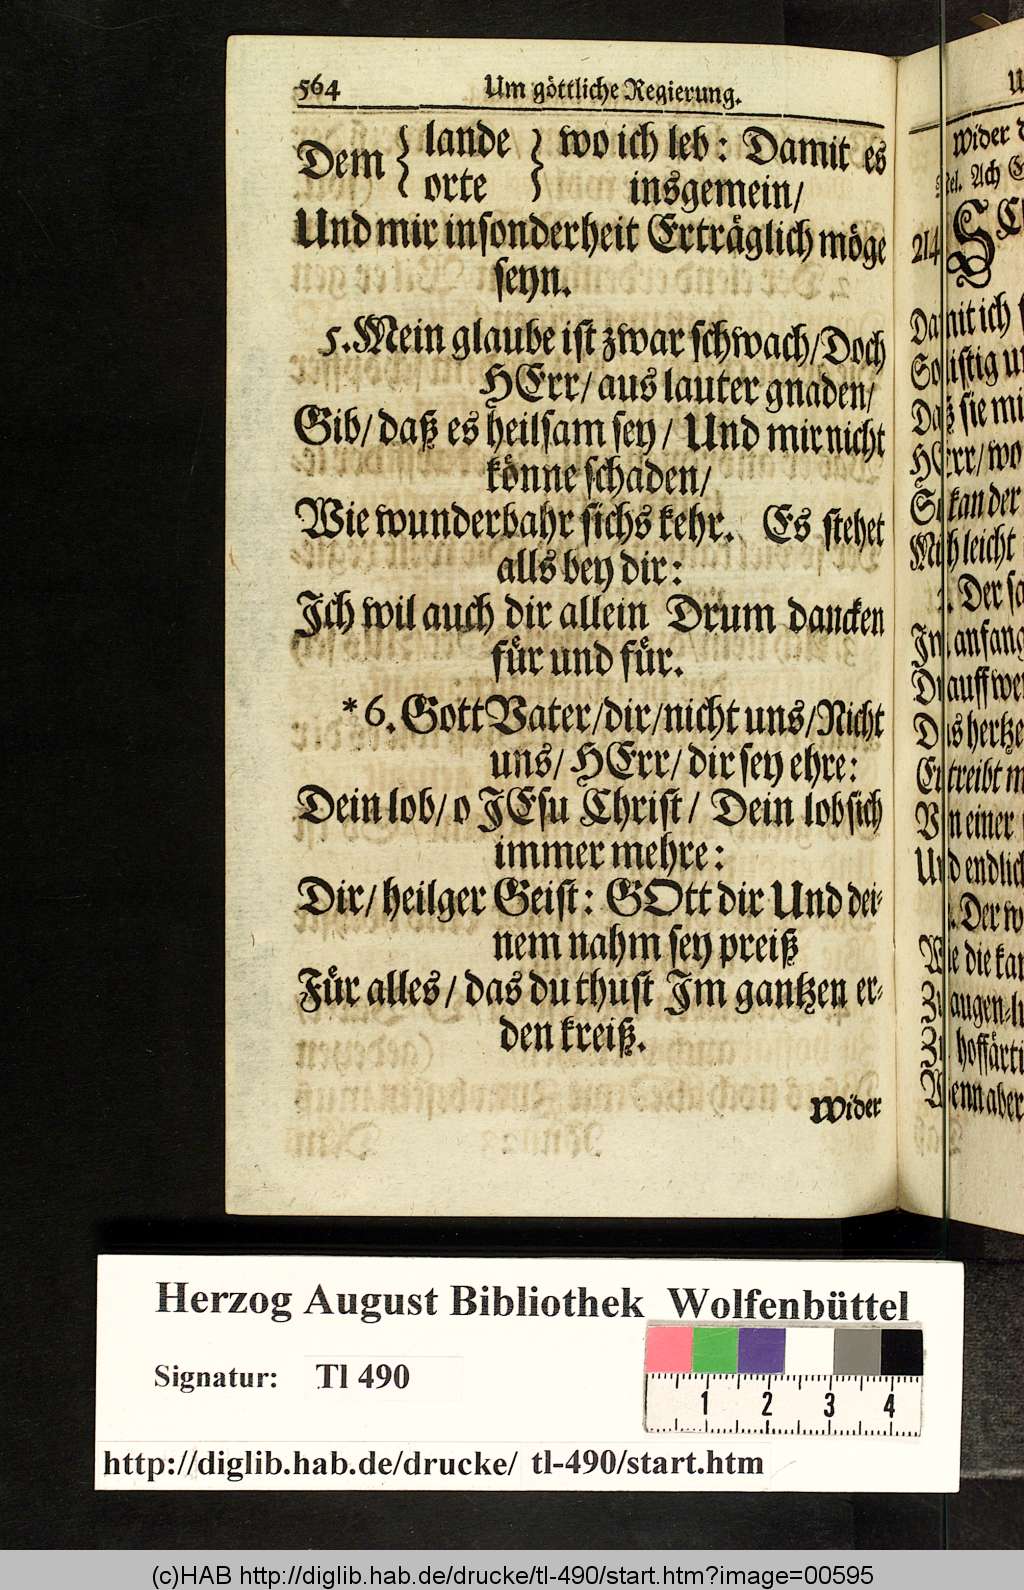 564 Um göttliche Regierung.
Dem { lande } wo ich leb: Damit es
{ orte } insgemein/
Und mir insonderheit Erträglich möge
seyn.
5. Mein glaube ist zwar schwach/Doch
HErr/ aus lauter gnaden/
Gib/ daß es heilsam sey/ Und mir nicht
könne schaden/
Wie wunderbahr sichs kehr. Es stehet
alls bey dir:
Ich wil auch dir allein Drum dancken
für und für.
*6. Gott Vater/dir/nicht uns/Nicht
uns/ HErr/ dir sey ehre:
Dein lob/ o JEsu Christ/ Dein lob sich
immer mehre:
Dir/ heilger Geist: GOtt dir Und dei-
nem nahm sey preiß
Für alles/ das du thust Im gantzen er-
den kreiß.
Wider
Wider
Mel. Ach
214
Damit ich
Daß sie mi
HErr/ wo
So kan der
Mich leicht
Der
Im anfang
Drauff
Das hertze
Er treibt
Von einer
Und endlich
Der
Wie die
Zu
Wenn aber
Herzog August Bibliothek Wolfenbüttel
Signatur: Tl 490
1 2 3 4
http://diglib.hab.de/drucke/ tl-490/start.htm
(c)HAB http://diglib.hab.de/drucke/tl-490/start.htm?image=00595